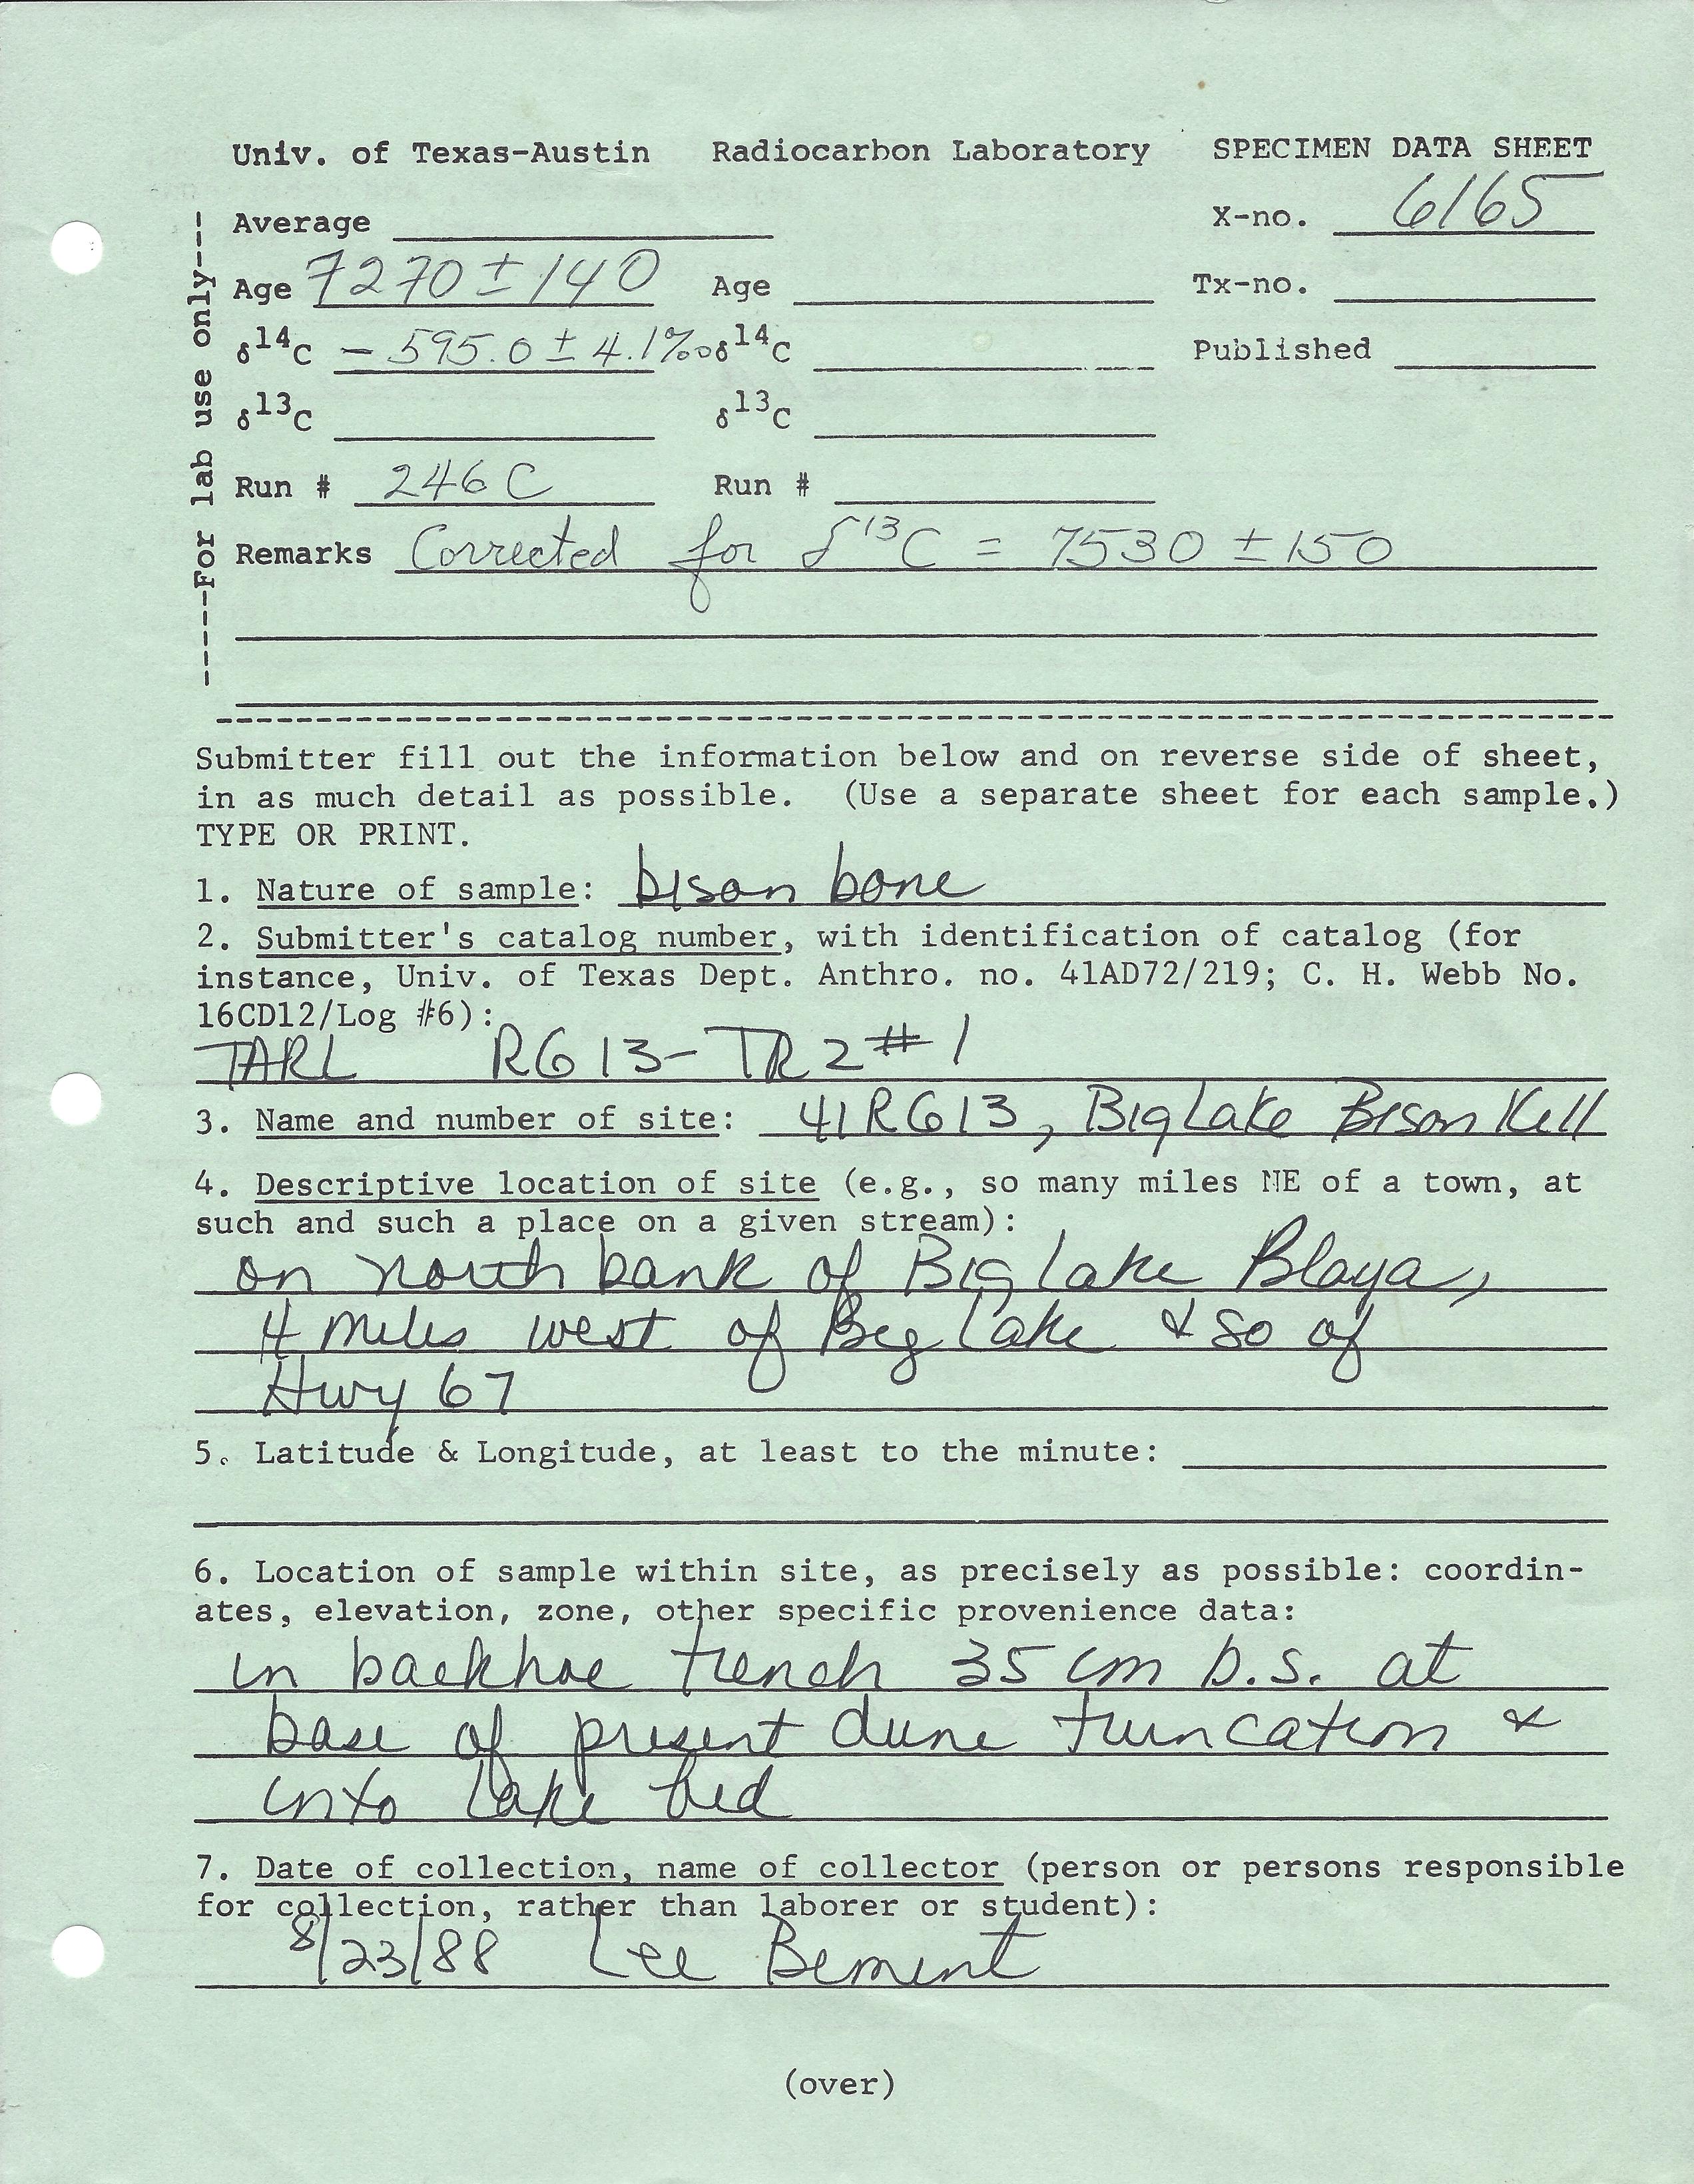 Univ. of Texas-Austin Radiocarbon Laboratory SPECIMEN DATA SHEET
-----For lab use only---
Average X-no. 6165
Age 7270 ± 140 Age Tx-no.
δ14C - 595.0 ± 4.1‰ δ14C Published
δ13C δ13C
Run # 246 C Run #
Remarks Corrected for δ13C = 7530 ± 150
Submitter fill out the information below and on reverse side of sheet,
in as much detail as possible. (Use a separate sheet for each sample.)
TYPE OR PRINT.
1. Nature of sample: bison bone
2. Submitter's catalog number, with identification of catalog (for
instance, Univ. of Texas Dept. Anthro. no. 41AD72/219; C. H. Webb No.
16CD12/Log #6):
TARL RG13-TR2#1
3. Name and number of site: 41RG13, Big Lake Bison Kill
4. Descriptive location of site (e.g., so many miles NE of a town, at
such and such a place on a given stream):
on north bank of Big Lake Blaya,
4 miles west of Big Lake & so of
Hwy 67
5. Latitude & Longitude, at least to the minute:
6. Location of sample within site, as precisely as possible: coordin-
ates, elevation, zone, other specific provenience data:
in backhoe trench 35 cm b.s. at
base of present dune truncation &
into lake bed
7. Date of collection, name of collector (person or persons responsible
for collection, rather than laborer or student):
8/23/88 Lee Bement
(over)